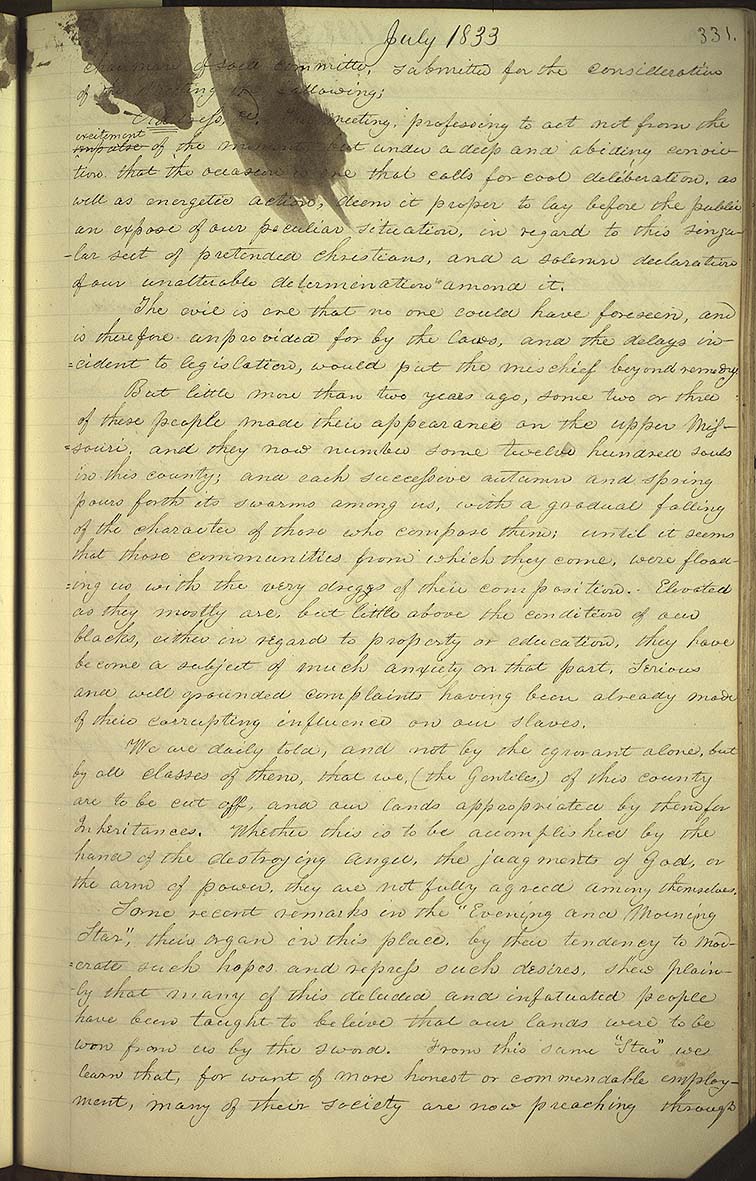 July 1833
331.
chairman of said committee, submitted for the consideration
of the meeting the following;
Address, &c. This meeting, professing to act not from the
excitement
impulse of the moment, but under a deep and abiding convic-
tion that the occasion is one that calls for cool deliberation, as
well as energetic action, deem it proper to lay before the public
an expose of our peculiar situation, in regard to this singu-
-lar sect of pretended christians, and a solemn declaration
of our unalterable determination amend it.
The evil is one that no one could have foreseen, and
is therefore unprovided for by the laws, and the delays in-
=cident to legislation, would put the mischief beyond remedy.
But little more than two years ago, some two or three
of these people made their appearance on the upper Mis-
=souri, and they now number some twelve hundred souls
in this county; and each successive autumn and spring
pours forth its swarms among us, with a gradual falling
of the character of those who compose them; until it seems
that those communities from which they come, were flood-
=ing us with the very dreggs of their composition. Elevated
as they mostly are, but little above the condition of our
blacks, either in regard to property or education, they have
become a subject of much anxiety on that part, serious
and well grounded complaints having been already made
of their corrupting influence on our slaves.
We are daily told, and not by the ignorant alone, but
by all classes of them, that we, (the Gentiles,) of this county
are to be cut off, and our lands appropriated by them for
Inheritances. Whether this is to be acomplished by the
hand of the destroying angel, the judgments of God, or
the arm of power, they are not fully agreed among themselves.
Some recent remarks in the "Evening and Morning
Star", their organ in this place, by their tendency to mod-
=erate such hopes and repress such desires, shew plain-
ly that many of this deluded and infatuated people
have been taught to believe that our lands were to be
won from us by the sword. From this same "Star" we
learn that, for want of more honest or commendable employ-
ment, many of their society are now preaching through